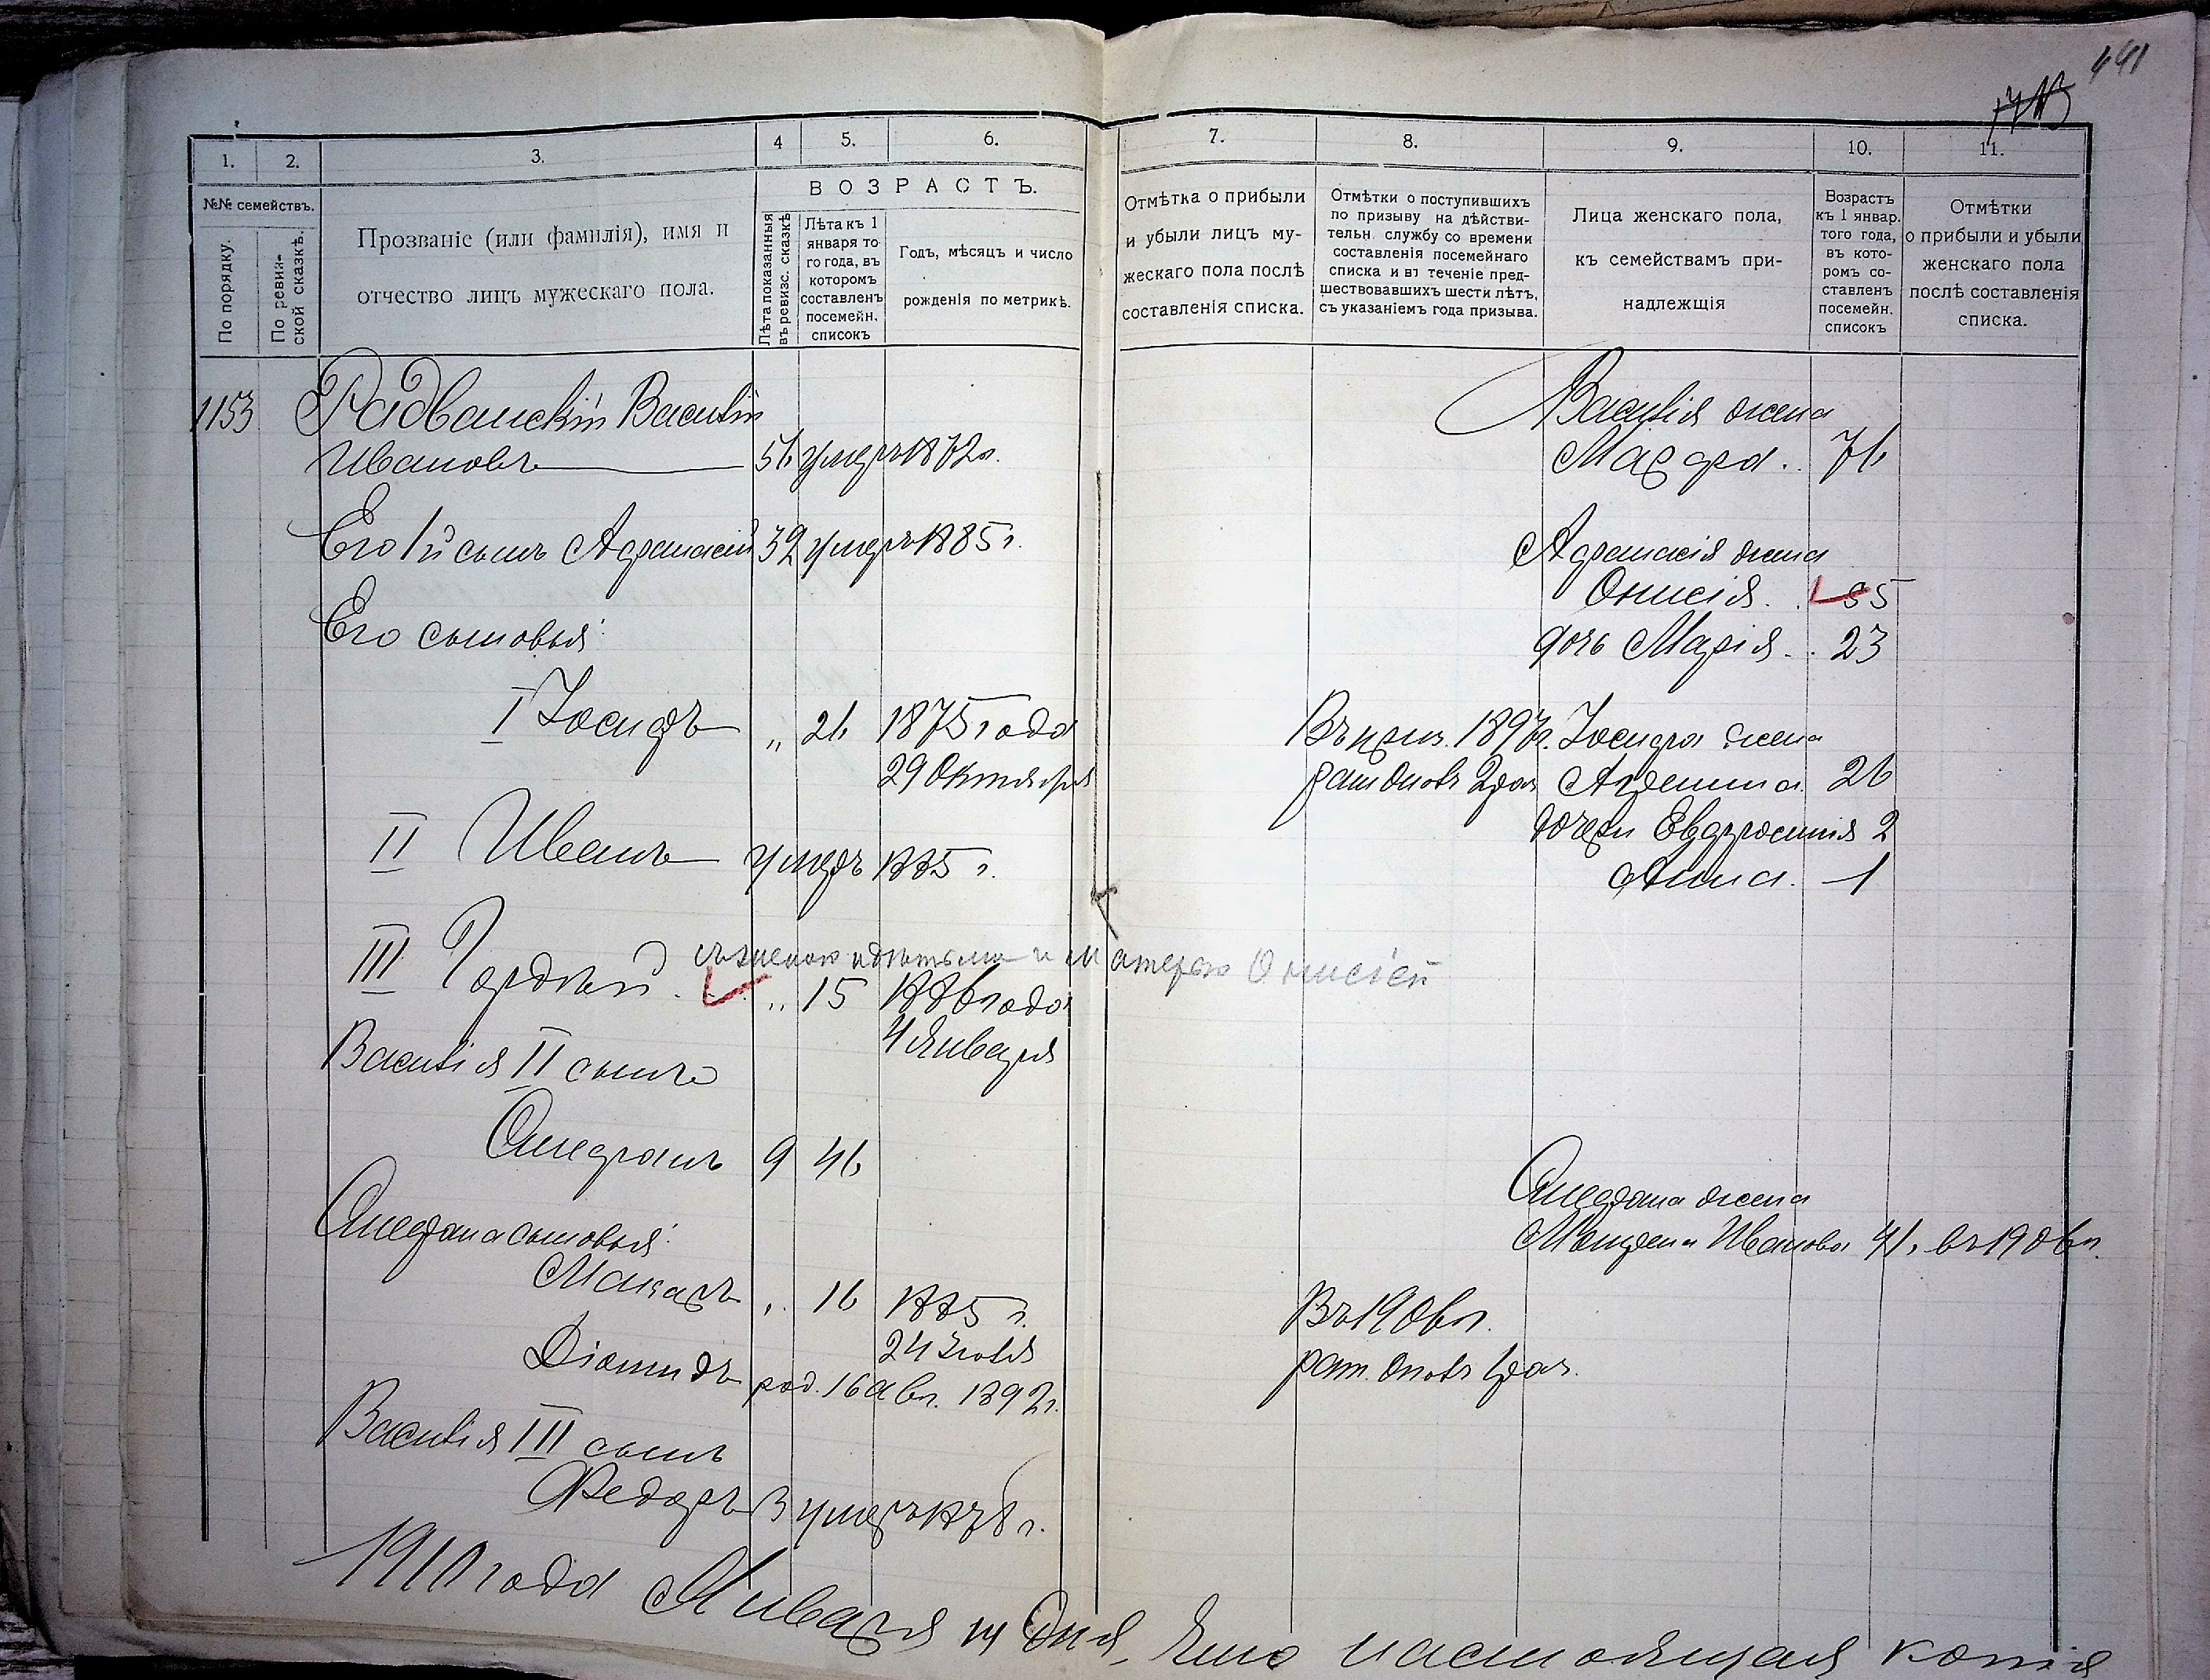 441
1. 2. 3. 4 5. 6. 7. 8. 9. 10. 11.
№№ семействъ.
По порядку.
По ревиз-
ской сказкѣ.
Прозваніе (или фамилія), имя и
отчество лицъ мужескаго пола.
ВОЗРАСТЪ.
Лѣта показанныя
въ ревизс. сказкѣ
Лѣта къ 1
января то-
го года, въ
которомъ
составленъ
посемейн.
списокъ
Годъ, мѣсяцъ и число
рожденія по метрикѣ.
Отмѣтка о прибыли
и убыли лицъ му-
жескаго пола послѣ
составленія списка.
Отмѣтки о поступившихъ
по призыву на дѣйстви-
тельн. службу со времени
составленія посемейнаго
списка и въ теченіе пред-
шествовавшихъ шести лѣтъ,
съ указаніемъ года призыва.
Лица женскаго пола,
къ семействамъ при-
надлежщія
Возрастъ
къ 1 январ.
того года,
въ кото-
ромъ со-
ставленъ
посемейн.
списокъ
Отмѣтки
о прибыли и убыли
женскаго пола
послѣ составленія
списка.
1153 Радванскій Василій
Ивановъ 56 умеръ 1872г.
Василія жена
Марѳа .. 76
Его 1й сынъ Афанасій 39 умеръ 1885 г.
Афанасія жена
Онисія . . 55
Его сыновья:
дочь Марія . . 23
I Іосифъ „ 26 1875 года
29 Октября
Въ приз. 1897г. Іосифа жена
рат опол 2 раз Агрепина 26
дочери Евфросинія 2
Анна . 1
II Иванъ умеръ 1885 г.
III Гордѣй . . „ 15 1886 года
съ женою и дѣтьми и матерью Онисіей
4 Января
Василія II сынъ
Стефанъ 9 46
Стефана жена
Матрена Иванова 41. въ 1906г.
Стефана сыновья:
Макаръ „ 16 1885 г.
24 Іюля
Въ 1906г.
рат. опол 1 раз.
Діомидъ род. 16 Авг. 1892г.
Василія III сынъ
Федоръ 3 умеръ 1878 г.
1910 года Января 14 дня, Что настоящая копія